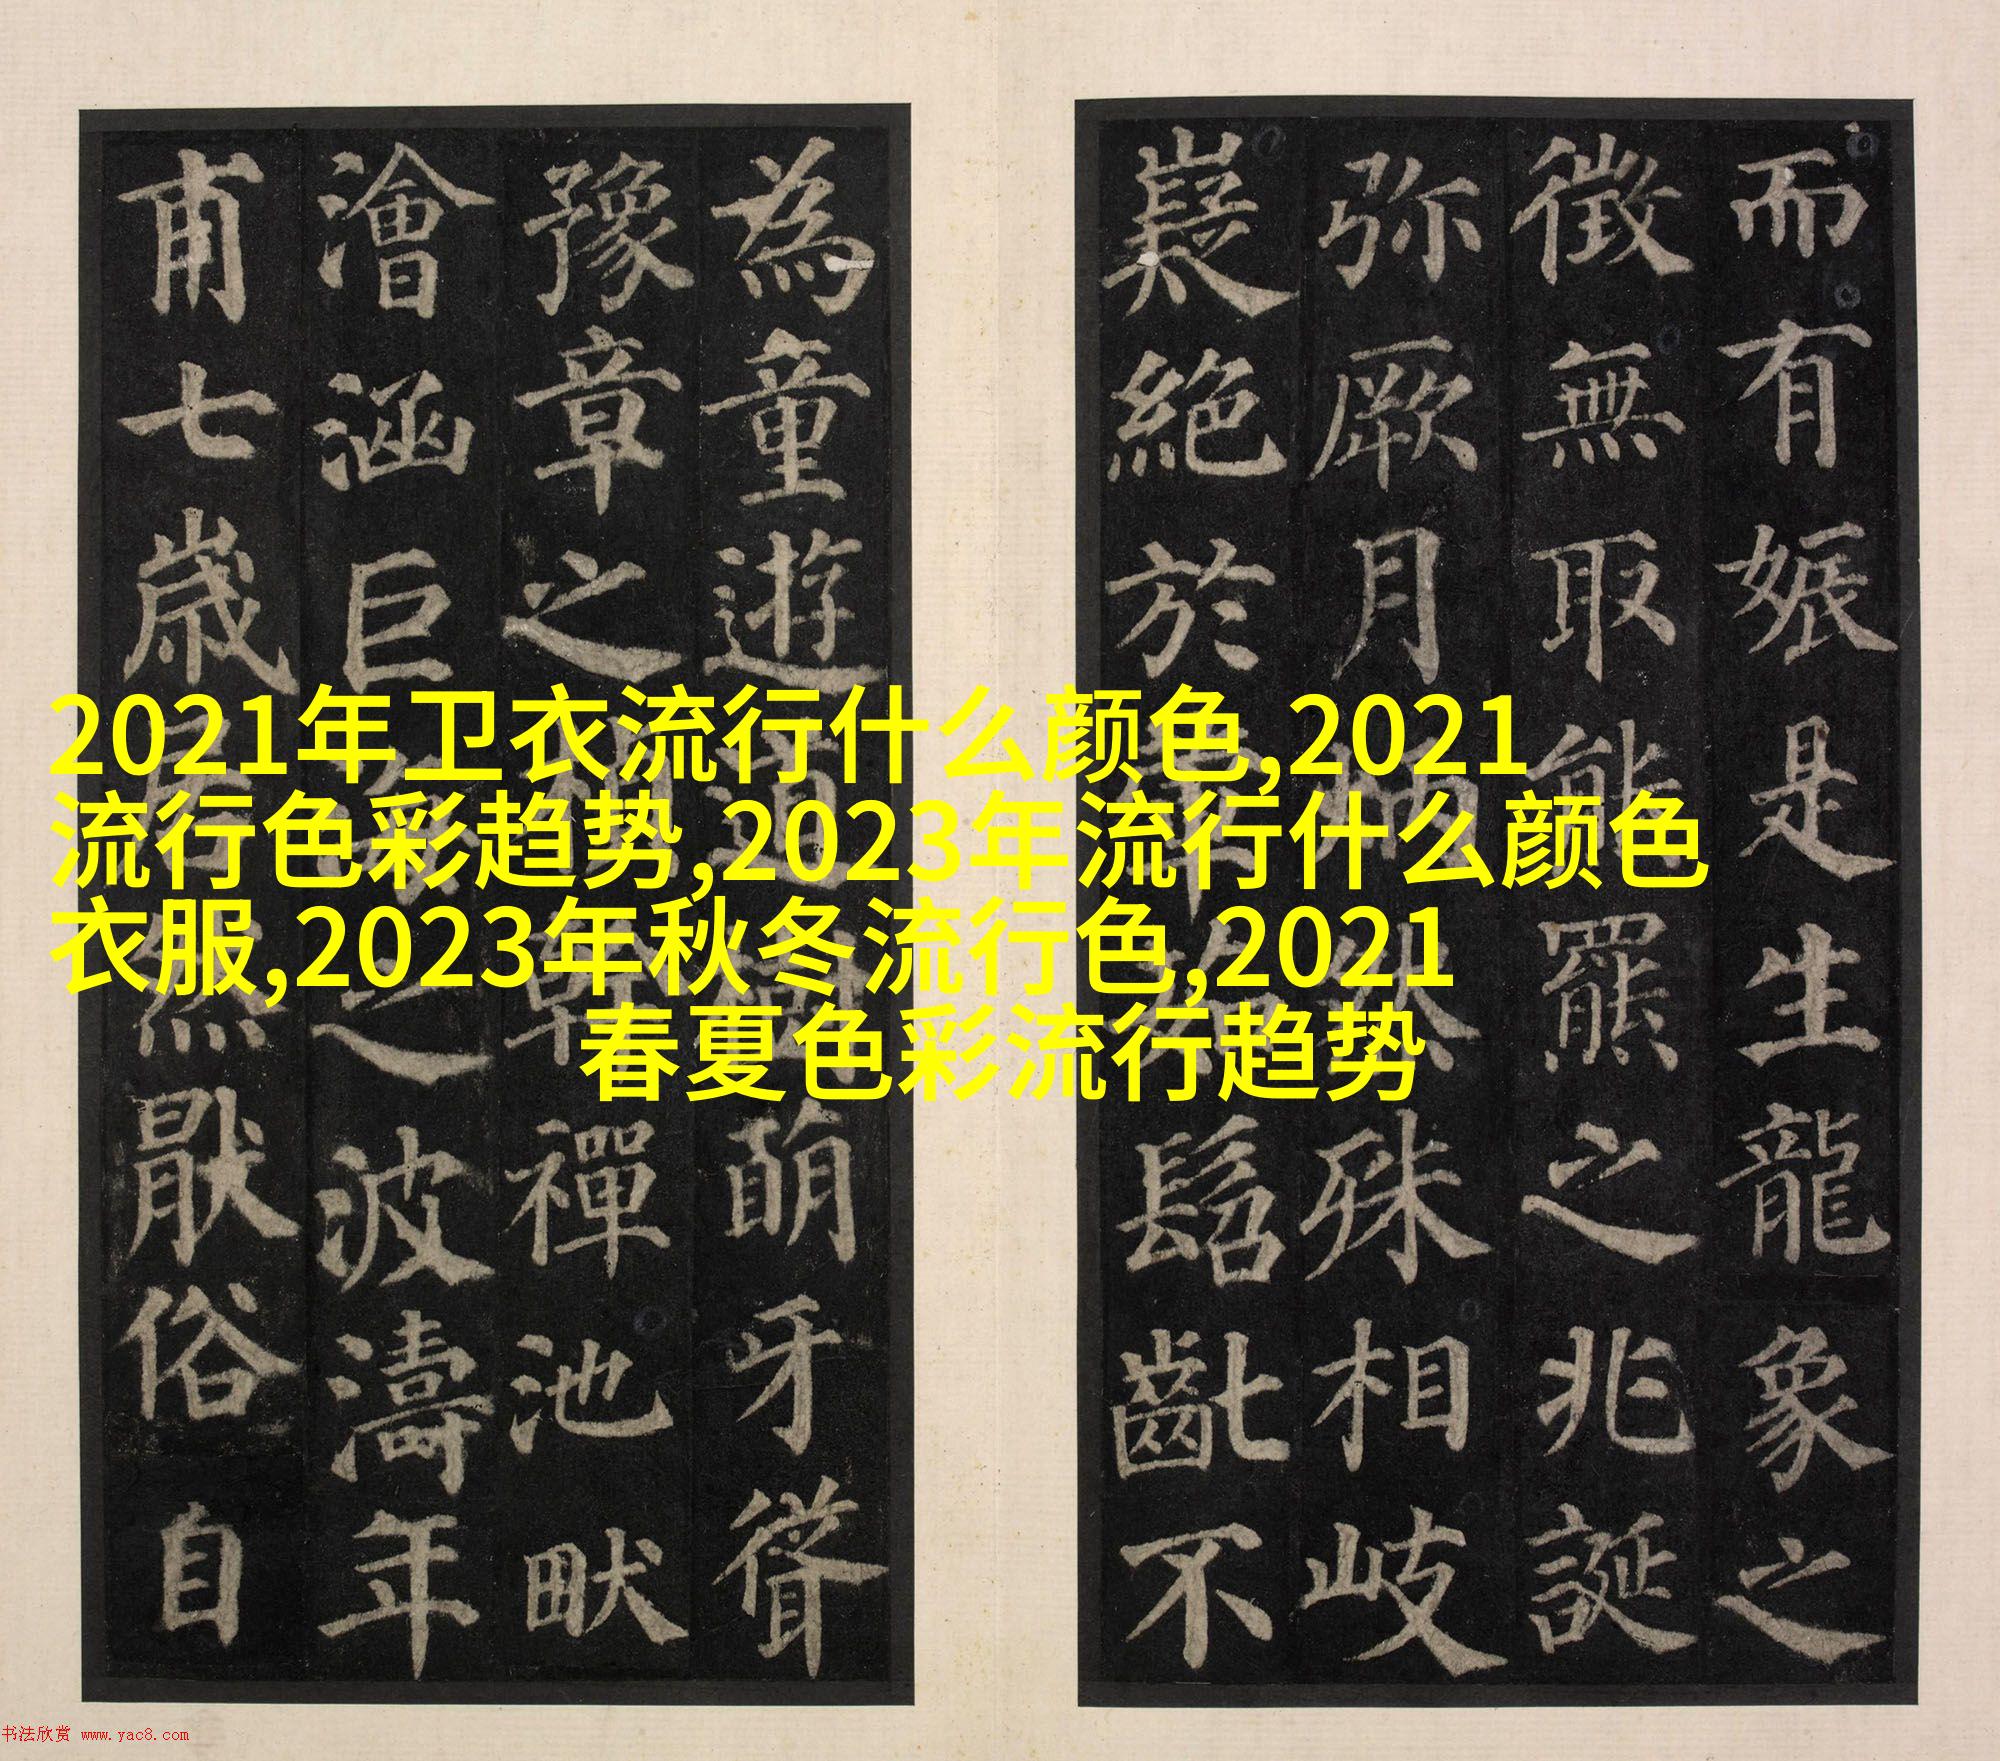 而有娠是生龍象之
徵無取熊羆之兆誕
弥厥月
殊相岐
嶷絶於
髫齓不
為童遊
萌牙聳
豫章之
禪池畎
澮涵巨
之波濤年
甫七歳
猒俗自
2021年卫衣流行什么颜色,2021
流行色彩趋势,2023年流行什么颜色
衣服,2023年秋冬流行色,2021
春夏色彩流行趋势
书法欣赏 www.yac8.com